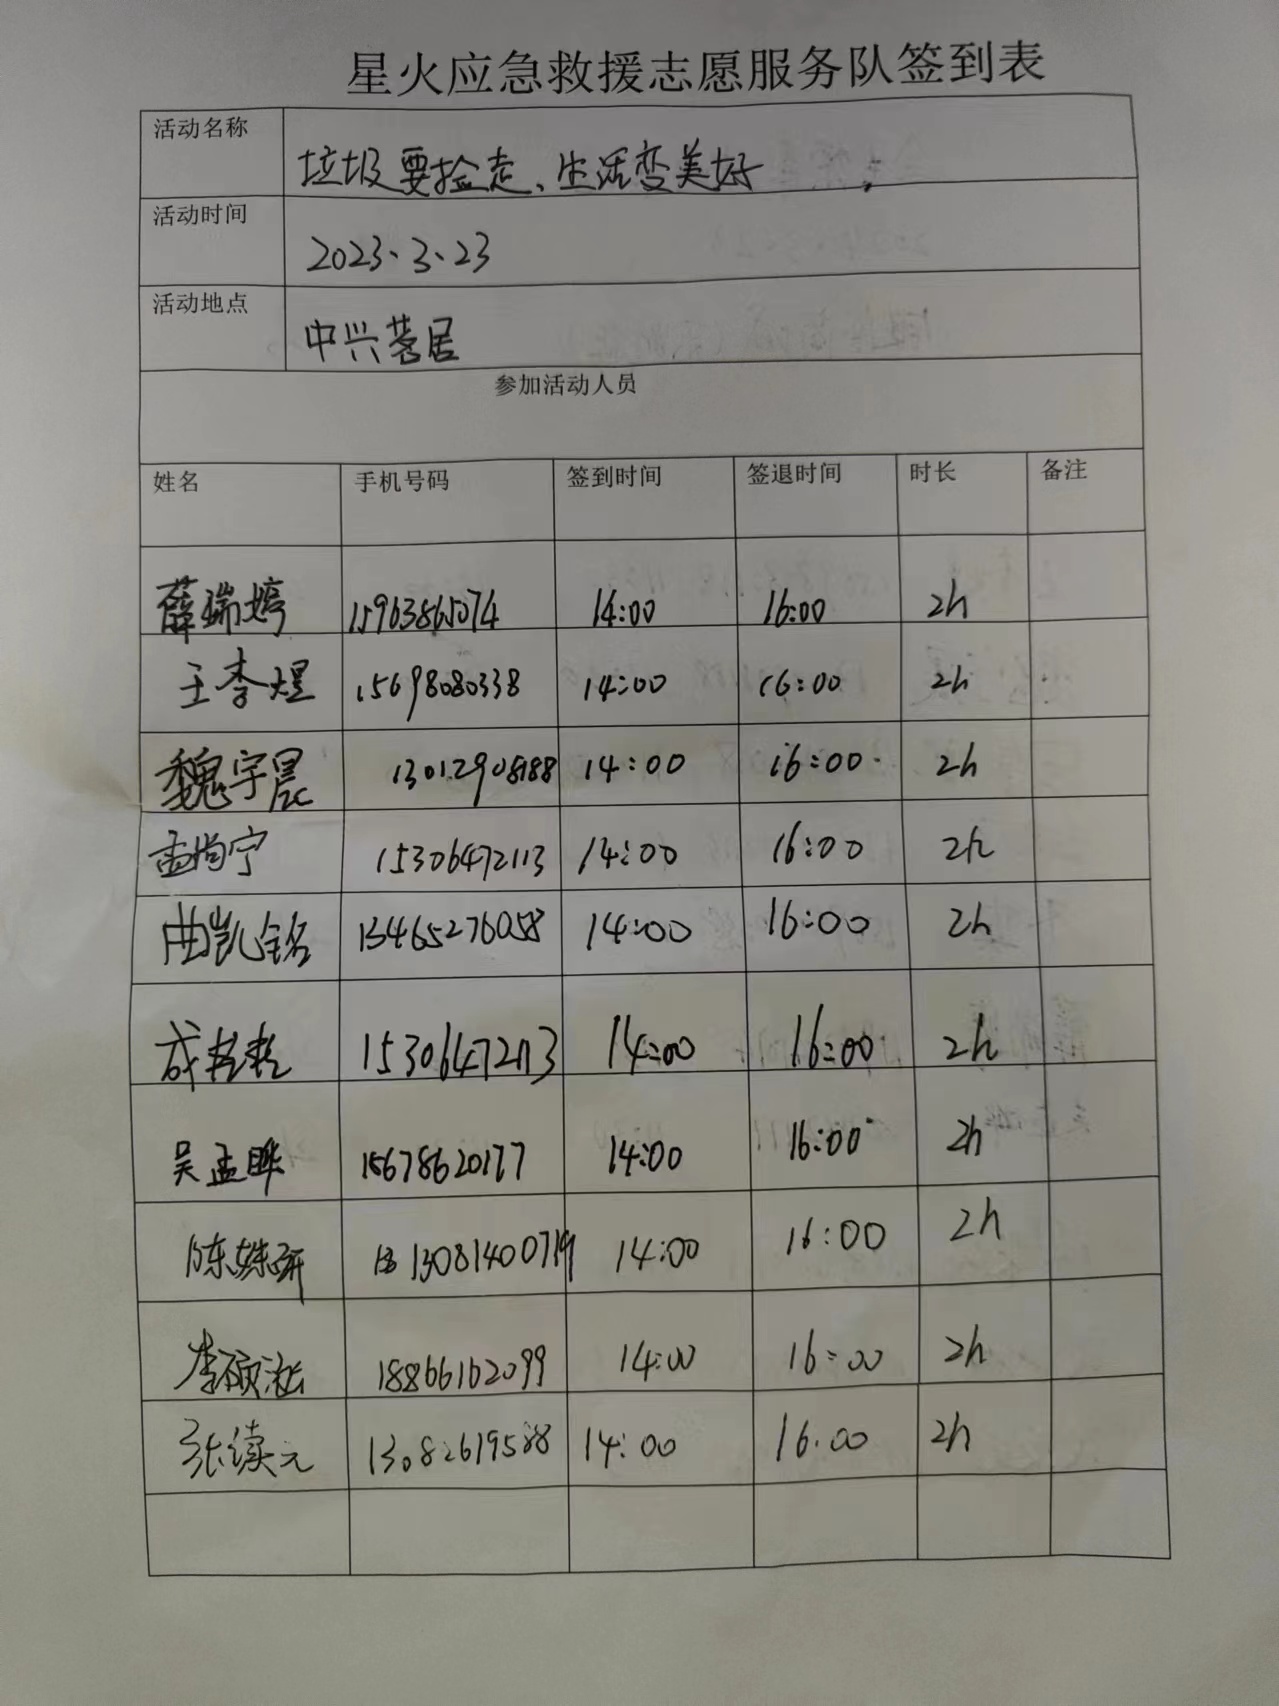 星火应急救援志愿服务队签到表
活动名称 垃圾要捡走、生活变美好
活动时间 2023、3、23
活动地点 中兴茗居
参加活动人员
姓名 手机号码 签到时间 签退时间 时长 备注
薛瑞婷 15963865074 14:00 16:00 2h
王李煜 15698080338 14:00 16:00 2h
魏宇晨 13012908188 14:00 16:00 2h
孟尚宁 15306472113 14:00 16:00 2h
曲凯铭 13465276058 14:00 16:00 2h
成乾乾 15306472113 14:00 16:00 2h
吴孟晔 15678620177 14:00 16:00 2h
陈姝研 13081400719 14:00 16:00 2h
李硕 18866162099 14:00 16:00 2h
张续元 13082619588 14:00 16.00 2h